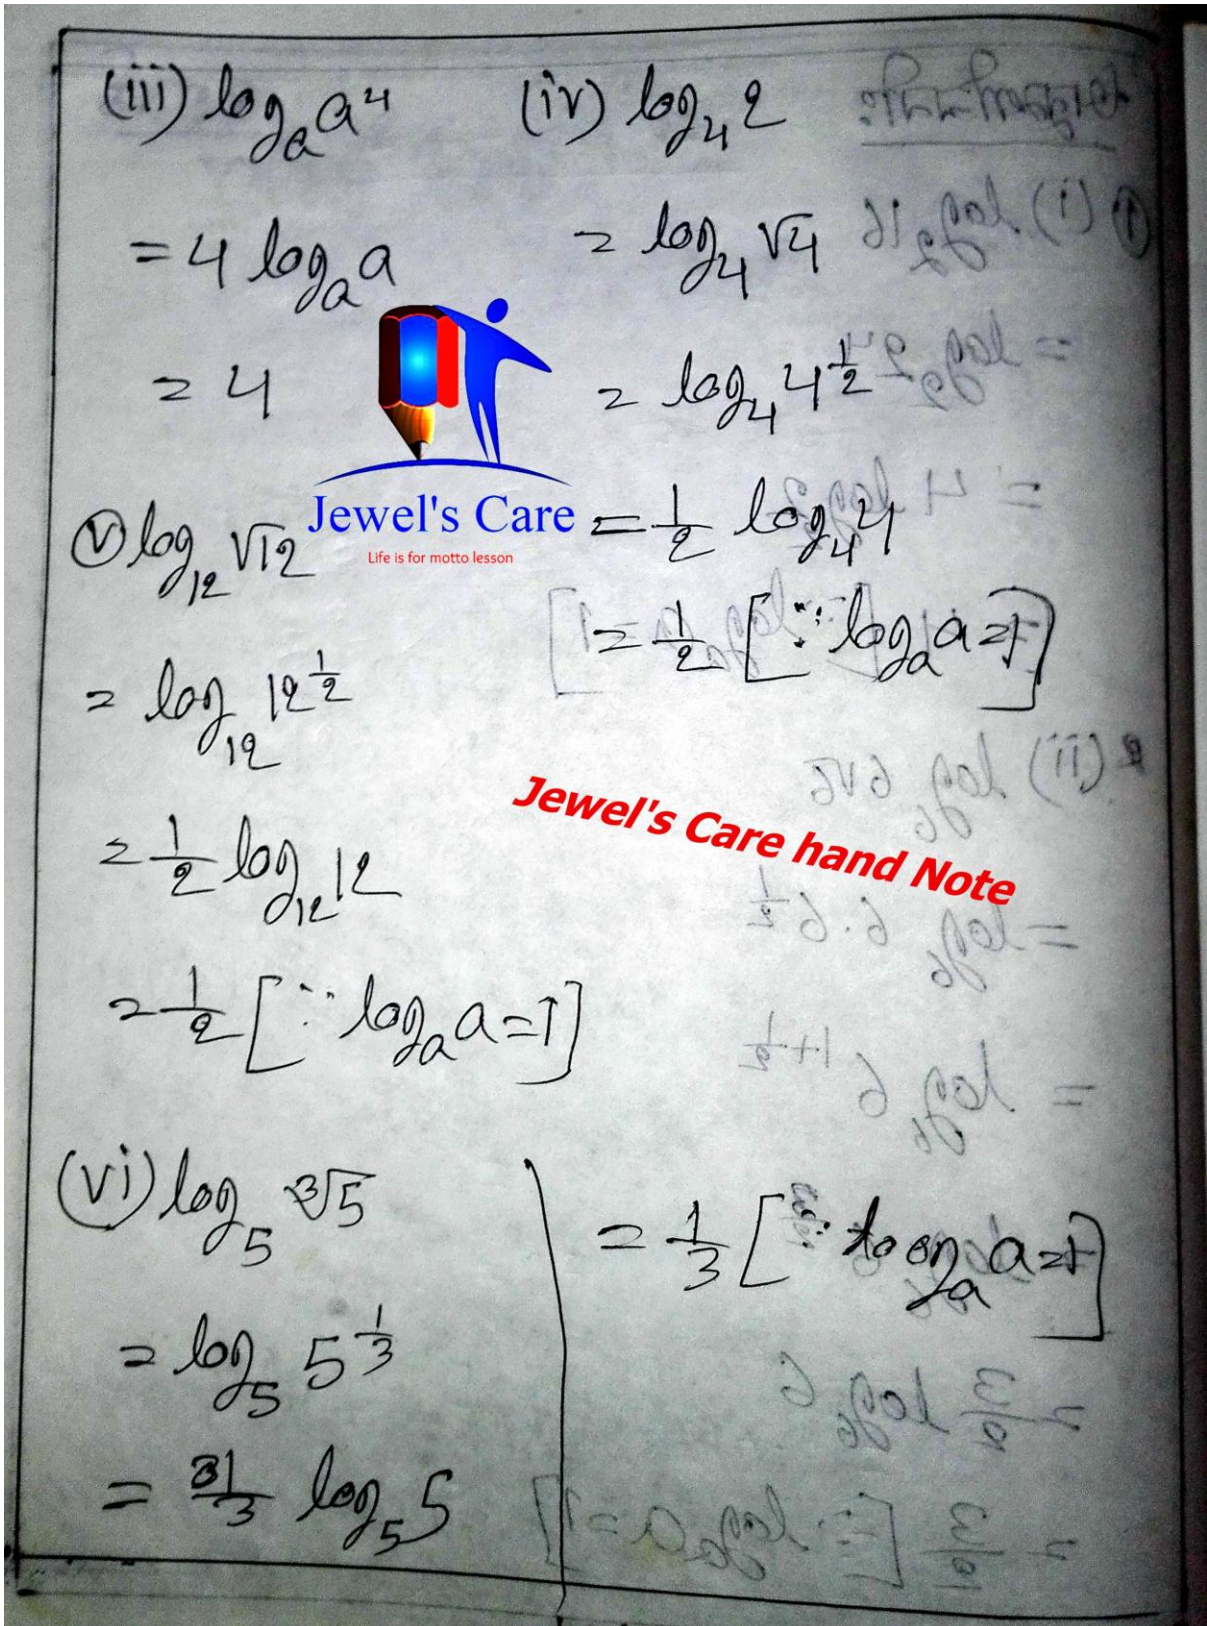 (iii) logₐ a⁴
= 4 logₐ a
= 4
(iv) log₄ 2
= log₄ √4
= log₄ 4^½
= ½ log₄ 4
= ½ [∵ logₐ a = 1]
Jewel's Care
Life is for motto lesson
(v) log₁₂ √12
= log₁₂ 12^½
= ½ log₁₂ 12
= ½ [∵ logₐ a = 1]
Jewel's Care hand Note
(vi) log₅ ∛5
= log₅ 5^⅓
= ⅓ log₅ 5
= ⅓ [∵ logₐ a = 1]